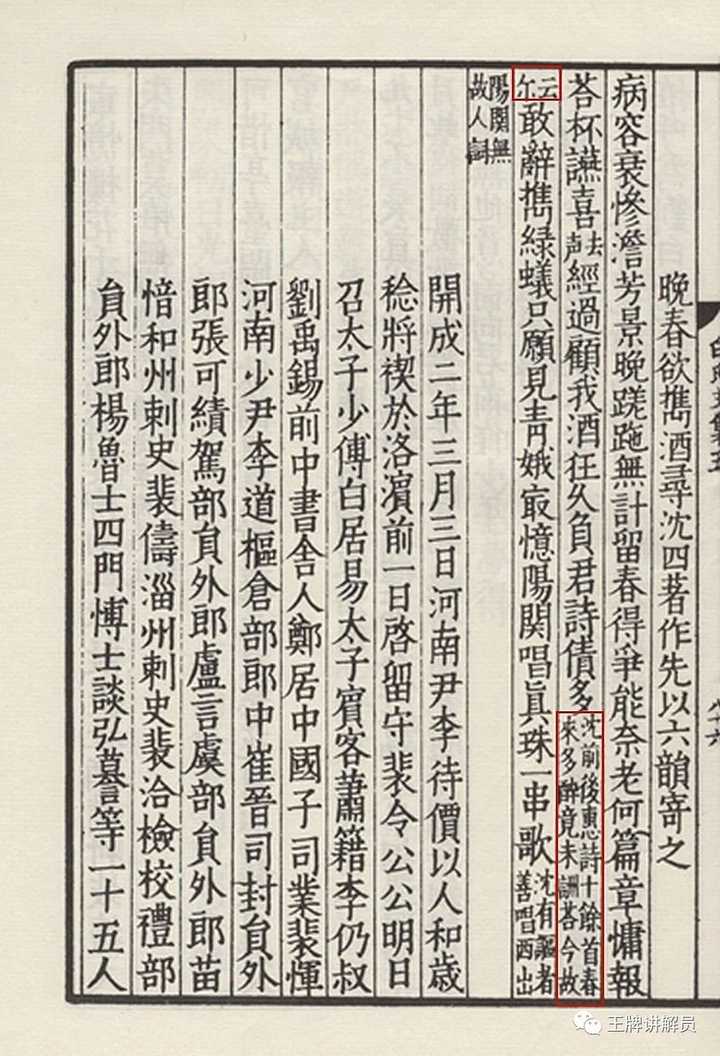 晚春欲擕酒尋沈四著作先以六韻寄之
病容衰慘澹芳景晚蹉跎無計留春得爭能奈老何篇章慵報
荅杯讌喜去声經過顧我酒狂久負君詩債多沈前後惠詩十餘首春來多醉竟未詶荅今故
云尒敢辭擕綠蟻只願見靑娥㝡憶陽關唱眞珠一串歌沈有謳者善唱西出
陽關無故人詞
開成二年三月三日河南尹李待價以人和歲
稔將禊於洛濱前一日啓留守裴令公公明日
召太子少傅白居易太子賓客蕭籍李仍叔
劉禹錫前中書舍人鄭居中國子司業裴惲
河南少尹李道樞倉部郎中崔晉司封員外
郎張可績駕部員外郎盧言虞部員外郎苗
愔和州刺史裴儔淄州刺史裴洽檢校禮部
員外郎楊魯士四門博士談弘謩等一十五人
王牌讲解员